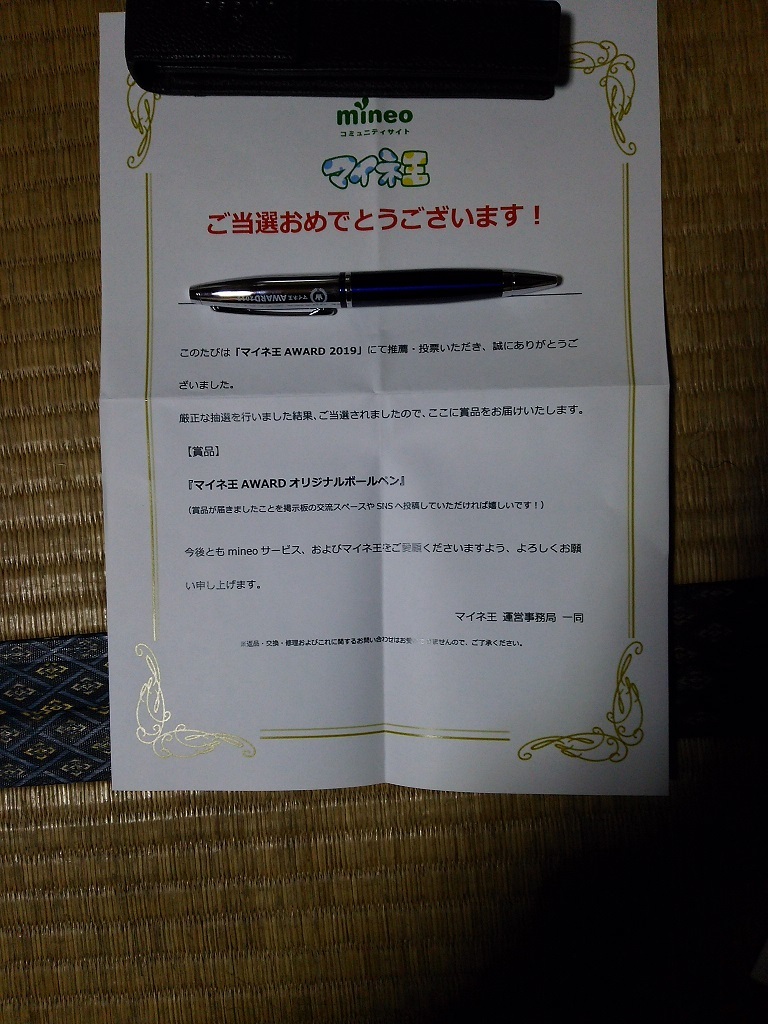 mineo
コミュニティサイト
マイネ王
ご当選おめでとうございます！
マイネ王 AWARD2019
このたびは「マイネ王 AWARD 2019」にて推薦・投票いただき、誠にありがとうご
ざいました。
厳正な抽選を行いました結果、ご当選されましたので、ここに賞品をお届けいたします。
【賞品】
『マイネ王 AWARD オリジナルボールペン』
（賞品が届きましたことを掲示板の交流スペースや SNS へ投稿していただければ嬉しいです！）
今後とも mineo サービス、およびマイネ王をご愛顧くださいますよう、よろしくお願
い申し上げます。
マイネ王 運営事務局 一同
※返品・交換・修理およびこれに関するお問い合わせはお受けできませんので、ご了承ください。